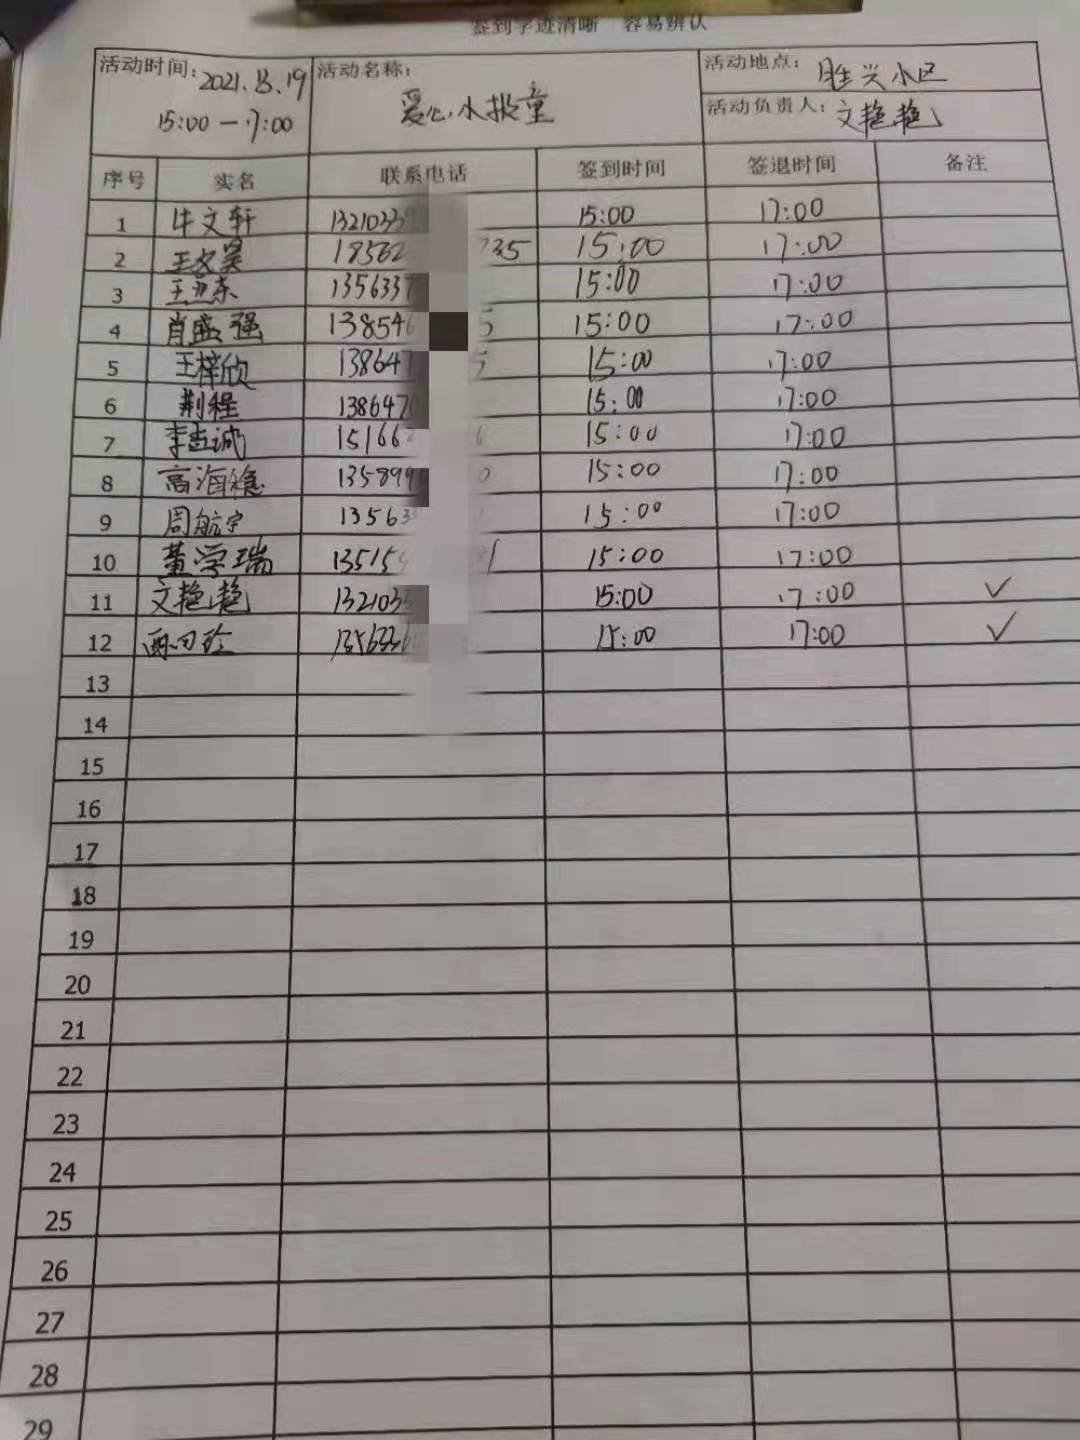 签到字迹清晰 容易辨认
活动时间: 2021.
15:00 — 17:00
活动名称:
爱心小报童
活动地点: 胜兴小区
活动负责人: 文艳艳
序号 实名 联系电话 签到时间 签退时间 备注
1 牛文轩 1321033 15:00 17:00
2 18562 735 15:00 17:00
3 1356337 15:00 17:00
4 肖盛强 138546 5 15:00 17:00
5 王梓欣 138647 5 15:00 17:00
6 荆程 138647 15:00 17:00
7 15166 6 15:00 17:00
8 高海 135899 0 15:00 17:00
9 周航宇 13563 15:00 17:00
10 董学瑞 13515 1 15:00 17:00
11 文艳艳 132103 15:00 17:00 ✓
12 135633 15:00 17:00 ✓
13
14
15
16
17
18
19
20
21
22
23
24
25
26
27
28
29